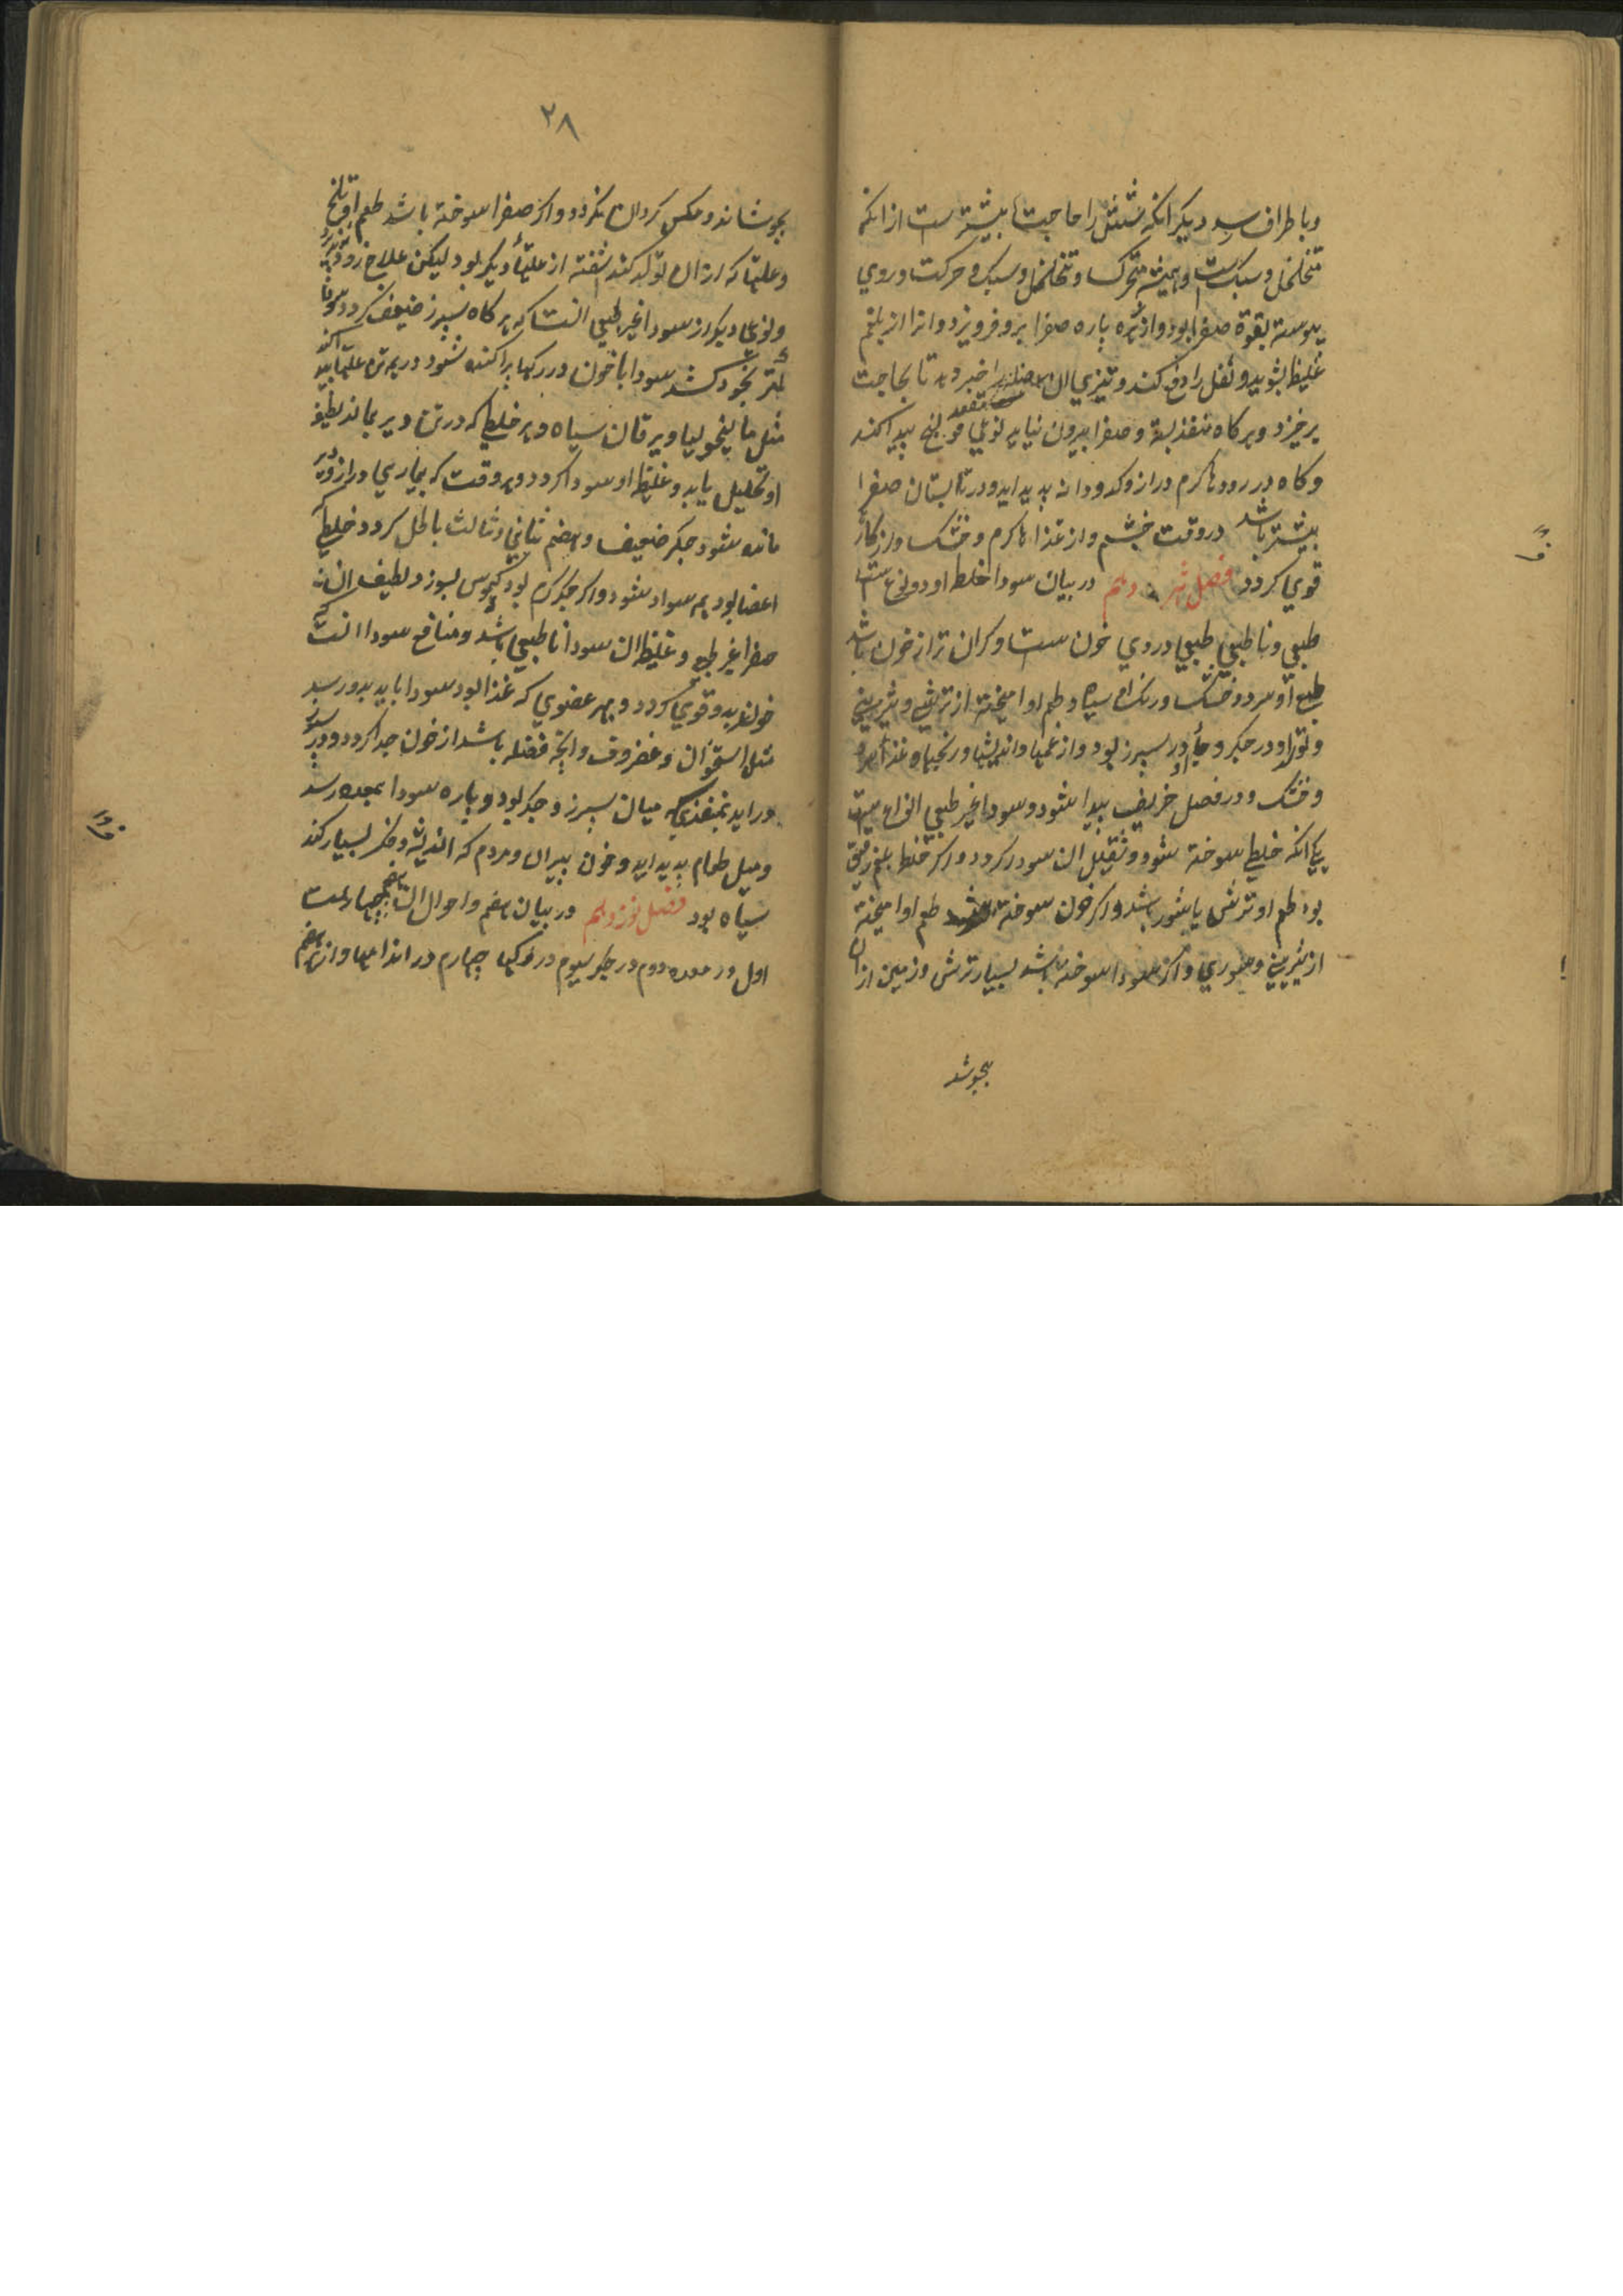 و باطراف رسد دیکر انکه شش را حاجت بیشترست از انکه
متخلخل و سبک ست و همیشه متحرک و تخلخل و سبک و حرکت و روی
پیوسته بقوة صفرا بود و از زهره پاره صفرا برو فرو یزد و انرا از بلغم
غلیظ بشوید و ثفل را دفع کند و تیزی ان عضله را خبر دهد تا بحاجت
برخیزد و هر کاه منفذ بسته و صفرا بیرون نیاید نوعی قولنج پیدا کند
و کاه در رودها کرم دراز و کدو دانه پدید اید و در تابستان صفرا
بیشتر باشد در وقت خشم و از غذاها کرم و خشک و از کار
قوی کردد فصل دهم در بیان سودا خلط او دو نوع ست
طبعی و نا طبعی طبعی دردی خون ست و کران تر از خون باشد
طبع او سرد و خشک و رنک او سیاه و طعم او امیخته از ترشی و شیرینی
و تولد او در جکر و جای او در سپرز بود و از غمها و اندیشها و رنجها و غذا سرد
و خشک و در فصل خریف پیدا شود و سودا غیر طبعی انواع ست
یکی انکه خلطی سوخته شود و ثقیل ان سودا کردد و اکر خلط بلغم رقیق
بود طعم او ترش یا شور باشد و اکر خون سوخته طعم او امیخته
از شیرینی و شوری و اکر سودا سوخته باشد بسیار ترش و زمین از ان
بجوشد
٢٨
بجوشاند و مکس کرد ان نکردد و اکر صفرا سوخته باشد طعم او تلخ
و علتها که از ان تولد کند اشفته از علتها دیکر بود لیکن علاج زود پذیرد
و نوعی دیکر از سودا غیر طبعی انست که هر کاه سپرز ضعیف کردد سودا
کمتر بخود کشد سودا با خون در رکها پراکنده شود در همه تن علتها پیدا کند
مثل مالیخولیا و یرقان سیاه و هر خلطی که در تن دیر بماند لطیف
او تحلیل یابد و غلیظ او سودا کردد و هر وقت که بیماری دراز و دیر
مانده شود جکر ضعیف و هضم ثانی و ثالث باطل کردد خلطی که
اعضا بود همه سودا شود و اکر جکر کرم بود کیموس بسوزد لطیف ان
صفرا غیر طبع و غلیظ ان سودا نا طبعی باشد و منافع سودا انست که
خون غلیظ و قوی کردد و هر عضوی که غذا بود سودا باید بدو رسد
مثل استخوان و غضروف و انچه فضله باشد از خون جدا کردد و در سپرز
در اید بمنفذی که میان سپرز و جکر بود و پاره سودا بمعده رسد
و میل طعام پدید اید و خون پیران و مردم که اندیشه و فکر بسیار کند
سیاه بود فصل نوزدهم در بیان هضم و احوال ان هضم چهارست
اول در معده دوم در جکر سیوم در رکها چهارم در اندامها و از هر هضم